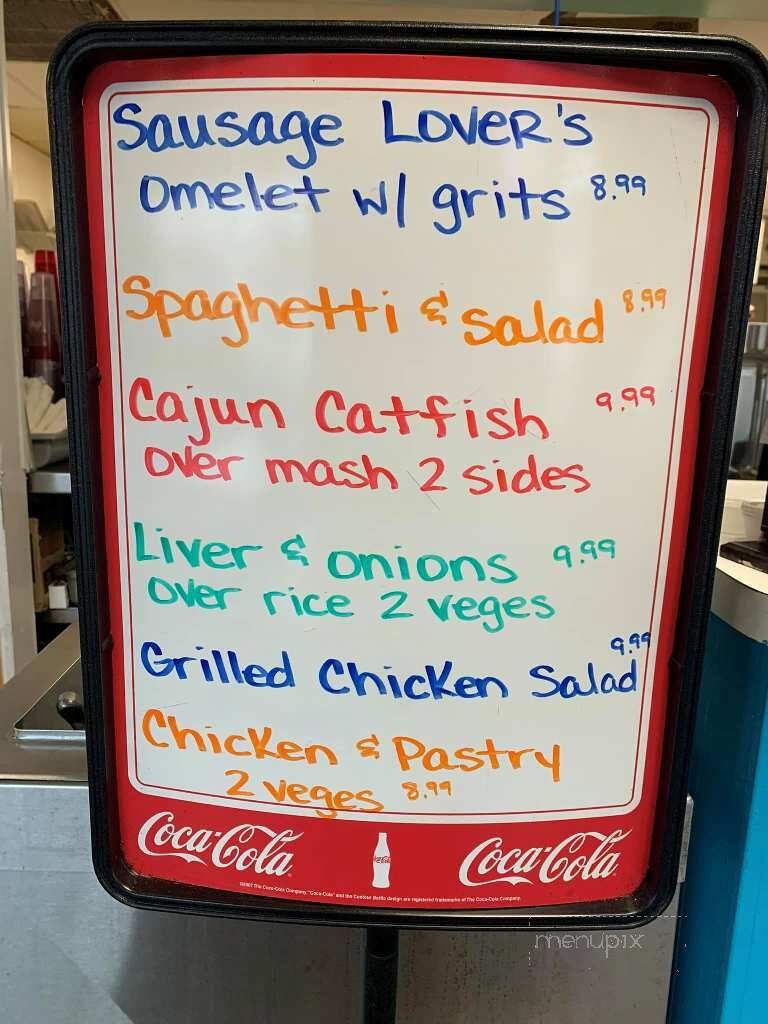 Sausage LOVER'S
Omelet w/ grits 8.99
Spaghetti & salad 8.99
Cajun Catfish 9.99
over mash 2 sides
Liver & onions 9.99
over rice 2 veges
Grilled Chicken Salad 9.99
Chicken & Pastry
2 veges 8.99
Coca-Cola Coca-Cola Coca-Cola
©2007 The Coca-Cola Company. "Coca-Cola" and the Contour Bottle design are registered trademarks of The Coca-Cola Company.
menupix